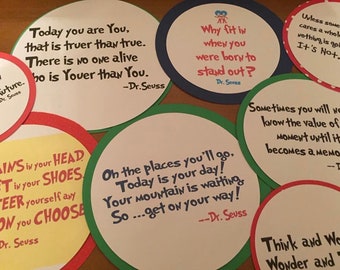 Today you are You,
that is truer than true.
There is no one alive
who is Youer than You.
--Dr. Seuss
Why fit in
when you
were born to
stand out?
Dr. Seuss
Unless some
cares a whole
nothing is go
It's Not.
Dr. Seuss
Sometimes you will ne
know the value of
moment until it
becomes a memo
AINS in your HEAD
ET in your SHOES
TEER yourself any
ON you CHOOSE
--Dr. Seuss
Oh the places you'll go.
Today is your day!
Your mountain is waiting.
So ...get on your way!
---Dr. Seuss
Think and Wo
Wonder and T